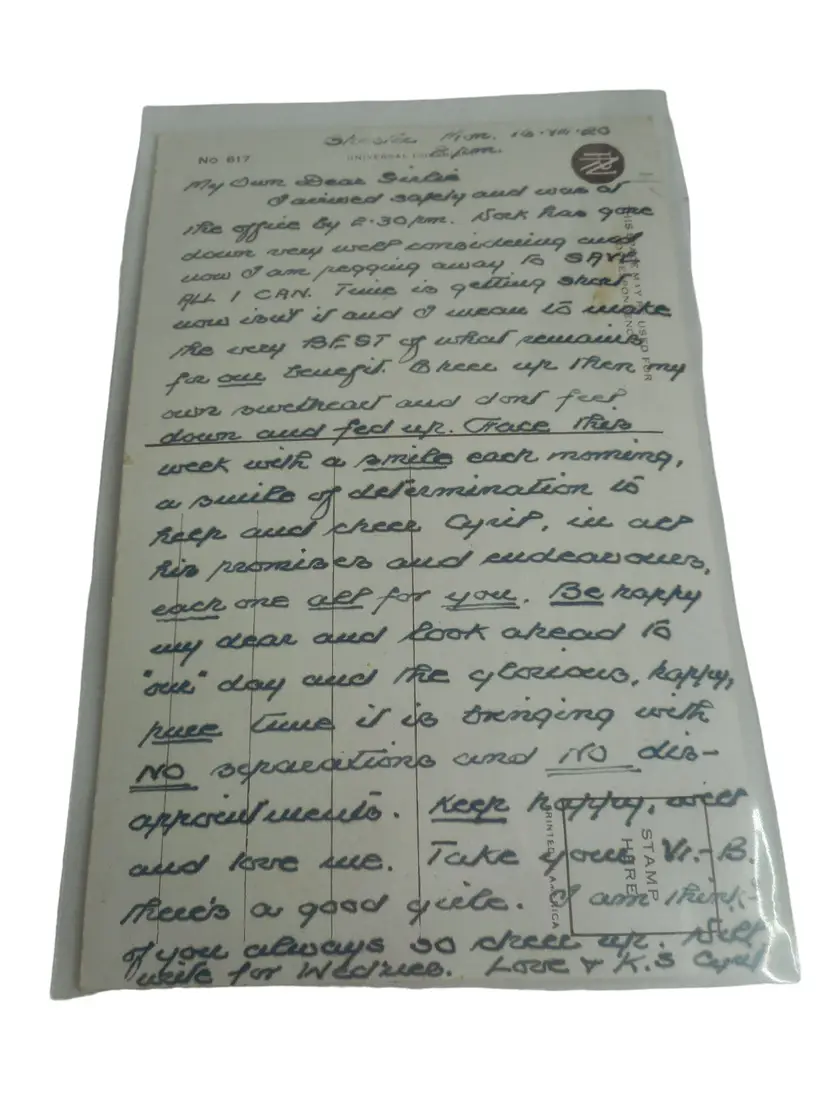 Mon.
8 pm.
No 617
UNIVERSAL
My Own Dear Girlie
I arrived safely and was at
the office by 2.30 pm. Work has gone
down very well considering and
now I am pegging away to SAVE
ALL I CAN. Time is getting short
now isn't it and I mean to make
the very BEST of what remains
for our benefit. Cheer up then my
own sweetheart and dont feel
down and fed up. Face this
week with a smile each morning,
a smile of determination to
help and cheer Cyril, in all
his promises and endeavours,
each one all for you. Be happy
my dear and look ahead to
"our" day and the glorious, happy,
pure time it is bringing with
NO separations and NO dis-
appointments. Keep happy, well
and love me. Take your Vi.-B,
there's a good girlie. I am think-
of you always so cheer up. Will
write for Wednes. Love & K.S Cyril
THIS SPACE MAY BE USED FOR
CORRESPONDENCE
STAMP
HERE
PRINTED IN AMERICA